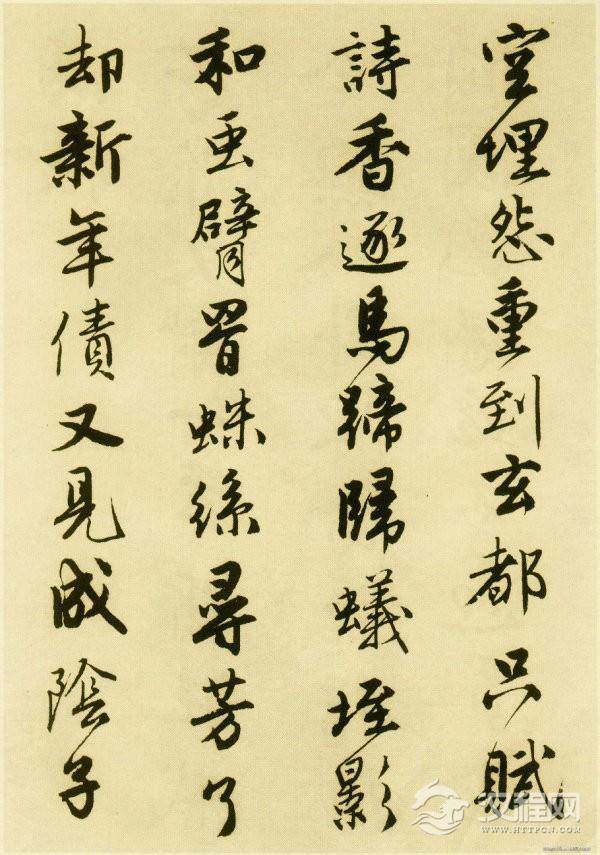 空埋怨重到玄都只賦
詩香逐馬蹄歸蟻垤影
和虫臂罥蛛絲尋芳了
却新年債又見成陰子
汉程网
WWW.HTTPCN.COM